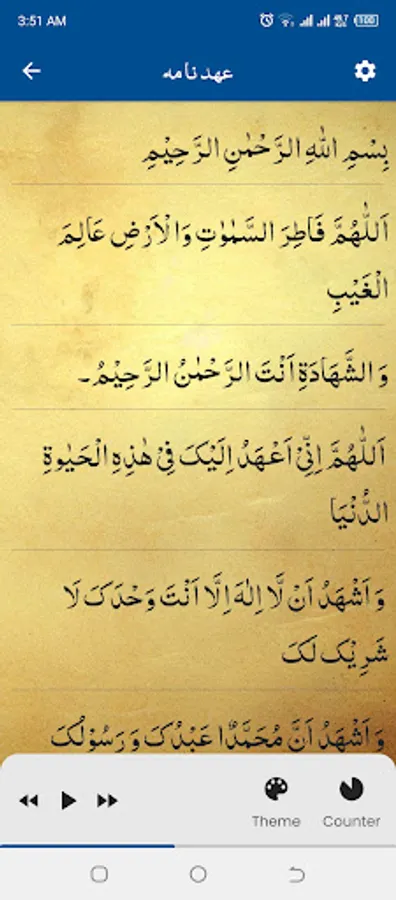 3:51 AM
100
عہد نامہ
بِسْمِ اللّٰهِ الرَّحْمٰنِ الرَّحِيْمِ
اَللّٰهُمَّ فَاطِرَ السَّمٰوٰتِ وَالْاَرْضِ عَالِمَ
الْغَيْبِ
وَالشَّهَادَةِ اَنْتَ الرَّحْمٰنُ الرَّحِيْمُ۔
اَللّٰهُمَّ اِنِّیْ اَعْهَدُ اِلَيْکَ فِیْ هٰذِهِ الْحَيٰوةِ
الدُّنْيَا
وَ اَشْهَدُ اَنْ لَّا اِلٰهَ اِلَّا اَنْتَ وَحْدَکَ لَا
شَرِيْکَ لَکَ
وَ اَشْهَدُ اَنَّ مُحَمَّدًا عَبْدُکَ وَ رَسُوْلُکَ
Theme
Counter